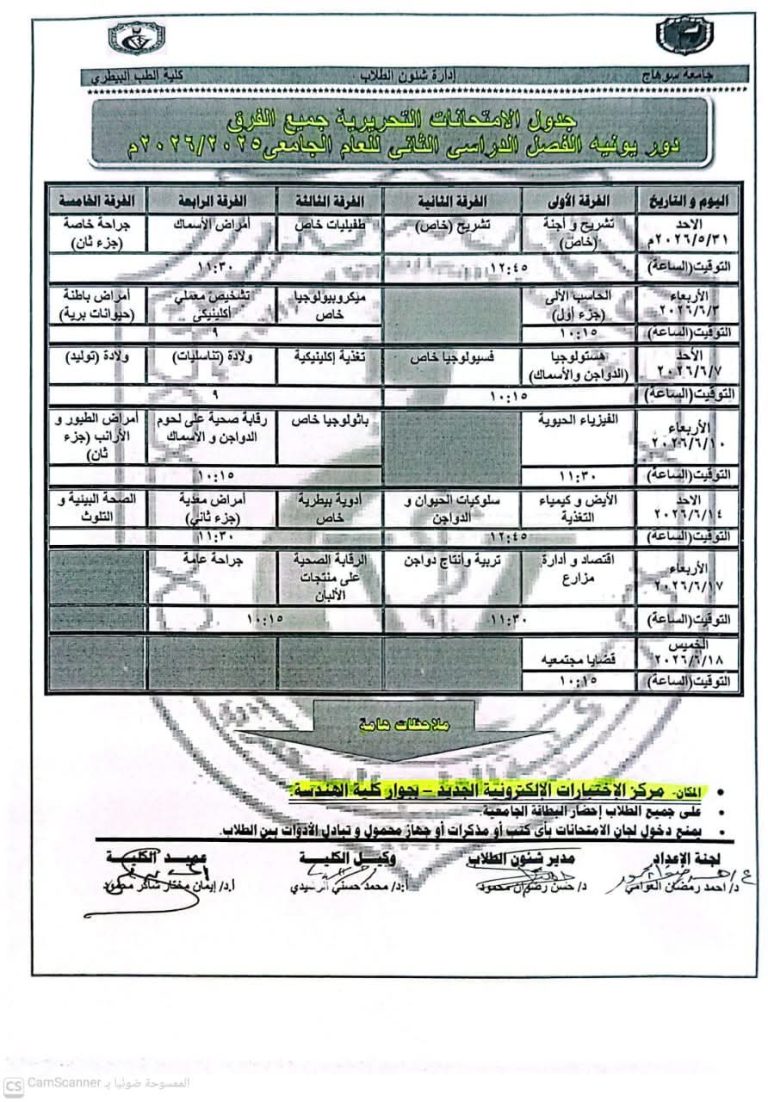 جامعة سوهاج إدارة شئون الطلاب كلية الطب البيطري
جدول الامتحانات التحريرية جميع الفرق
دور يونيه الفصل الدراسى الثانى للعام الجامعى ٢٠٢٦/٢٠٢٥م
اليوم و التاريخ الفرقة الأولى الفرقة الثانية الفرقة الثالثة الفرقة الرابعة الفرقة الخامسة
الاحد تشريح و أجنة تشريح (خاص) طفيليات خاص أمراض الأسماك جراحة خاصة
٢٠٢٦/٥/٣١م (خاص) (جزء ثان)
التوقيت(الساعة) ١٢:٤٥ ١١:٣٠
الأربعاء الحاسب الألى ميكروبيولوجيا تشخيص معملي أمراض باطنة
٢٠٢٦/٦/٣ (جزء أول) خاص أكلينيكى (حيوانات برية)
التوقيت(الساعة) ١٠:١٥ ٩
الأحد هستولوجيا فسيولوجيا خاص تغذية إكلينيكية ولادة (تناسليات) ولادة (توليد)
٢٠٢٦/٦/٧ (الدواجن والأسماك)
التوقيت(الساعة) ١٠:١٥ ٩
الأربعاء الفيزياء الحيوية باثولوجيا خاص رقابة صحية على لحوم أمراض الطيور و
٢٠٢٦/٦/١٠ الدواجن و الأسماك الأرانب (جزء
ثان)
التوقيت(الساعة) ١١:٣٠ ١٠:١٥
الاحد الأيض و كيمياء سلوكيات الحيوان و أدوية بيطرية أمراض معدية الصحة البيئية و
٢٠٢٦/٦/١٤ التغذية الدواجن خاص (جزء ثاني) التلوث
التوقيت(الساعة) ١٢:٤٥ ١١:٣٠
الأربعاء اقتصاد و أدارة تربية وأنتاج دواجن الرقابة الصحية جراحة عامة
٢٠٢٦/٦/١٧ مزارع على منتجات
الألبان
التوقيت(الساعة) ١١:٣٠ ١٠:١٥
الخميس قضايا مجتمعيه
٢٠٢٦/٦/١٨
التوقيت(الساعة) ١٠:١٥
ملاحظات هامة
• المكان- مركز الإختبارات الإلكترونية الجديد – بجوار كلية الهندسة
• على جميع الطلاب إحضار البطاقة الجامعية.
• يمنع دخول لجان الامتحانات بأى كتب أو مذكرات أو جهاز محمول و تبادل الأدوات بين الطلاب.
لجنة الإعداد مدير شئون الطلاب وكيل الكلية عميد الكلية
د/ احمد رمضان العوامي د/ حسن رضوان محمود أ.د/ محمد حسني الرشيدي أ.د/ إيمان مختار شاكر محمود
CS CamScanner الممسوحة ضوئيا بـ